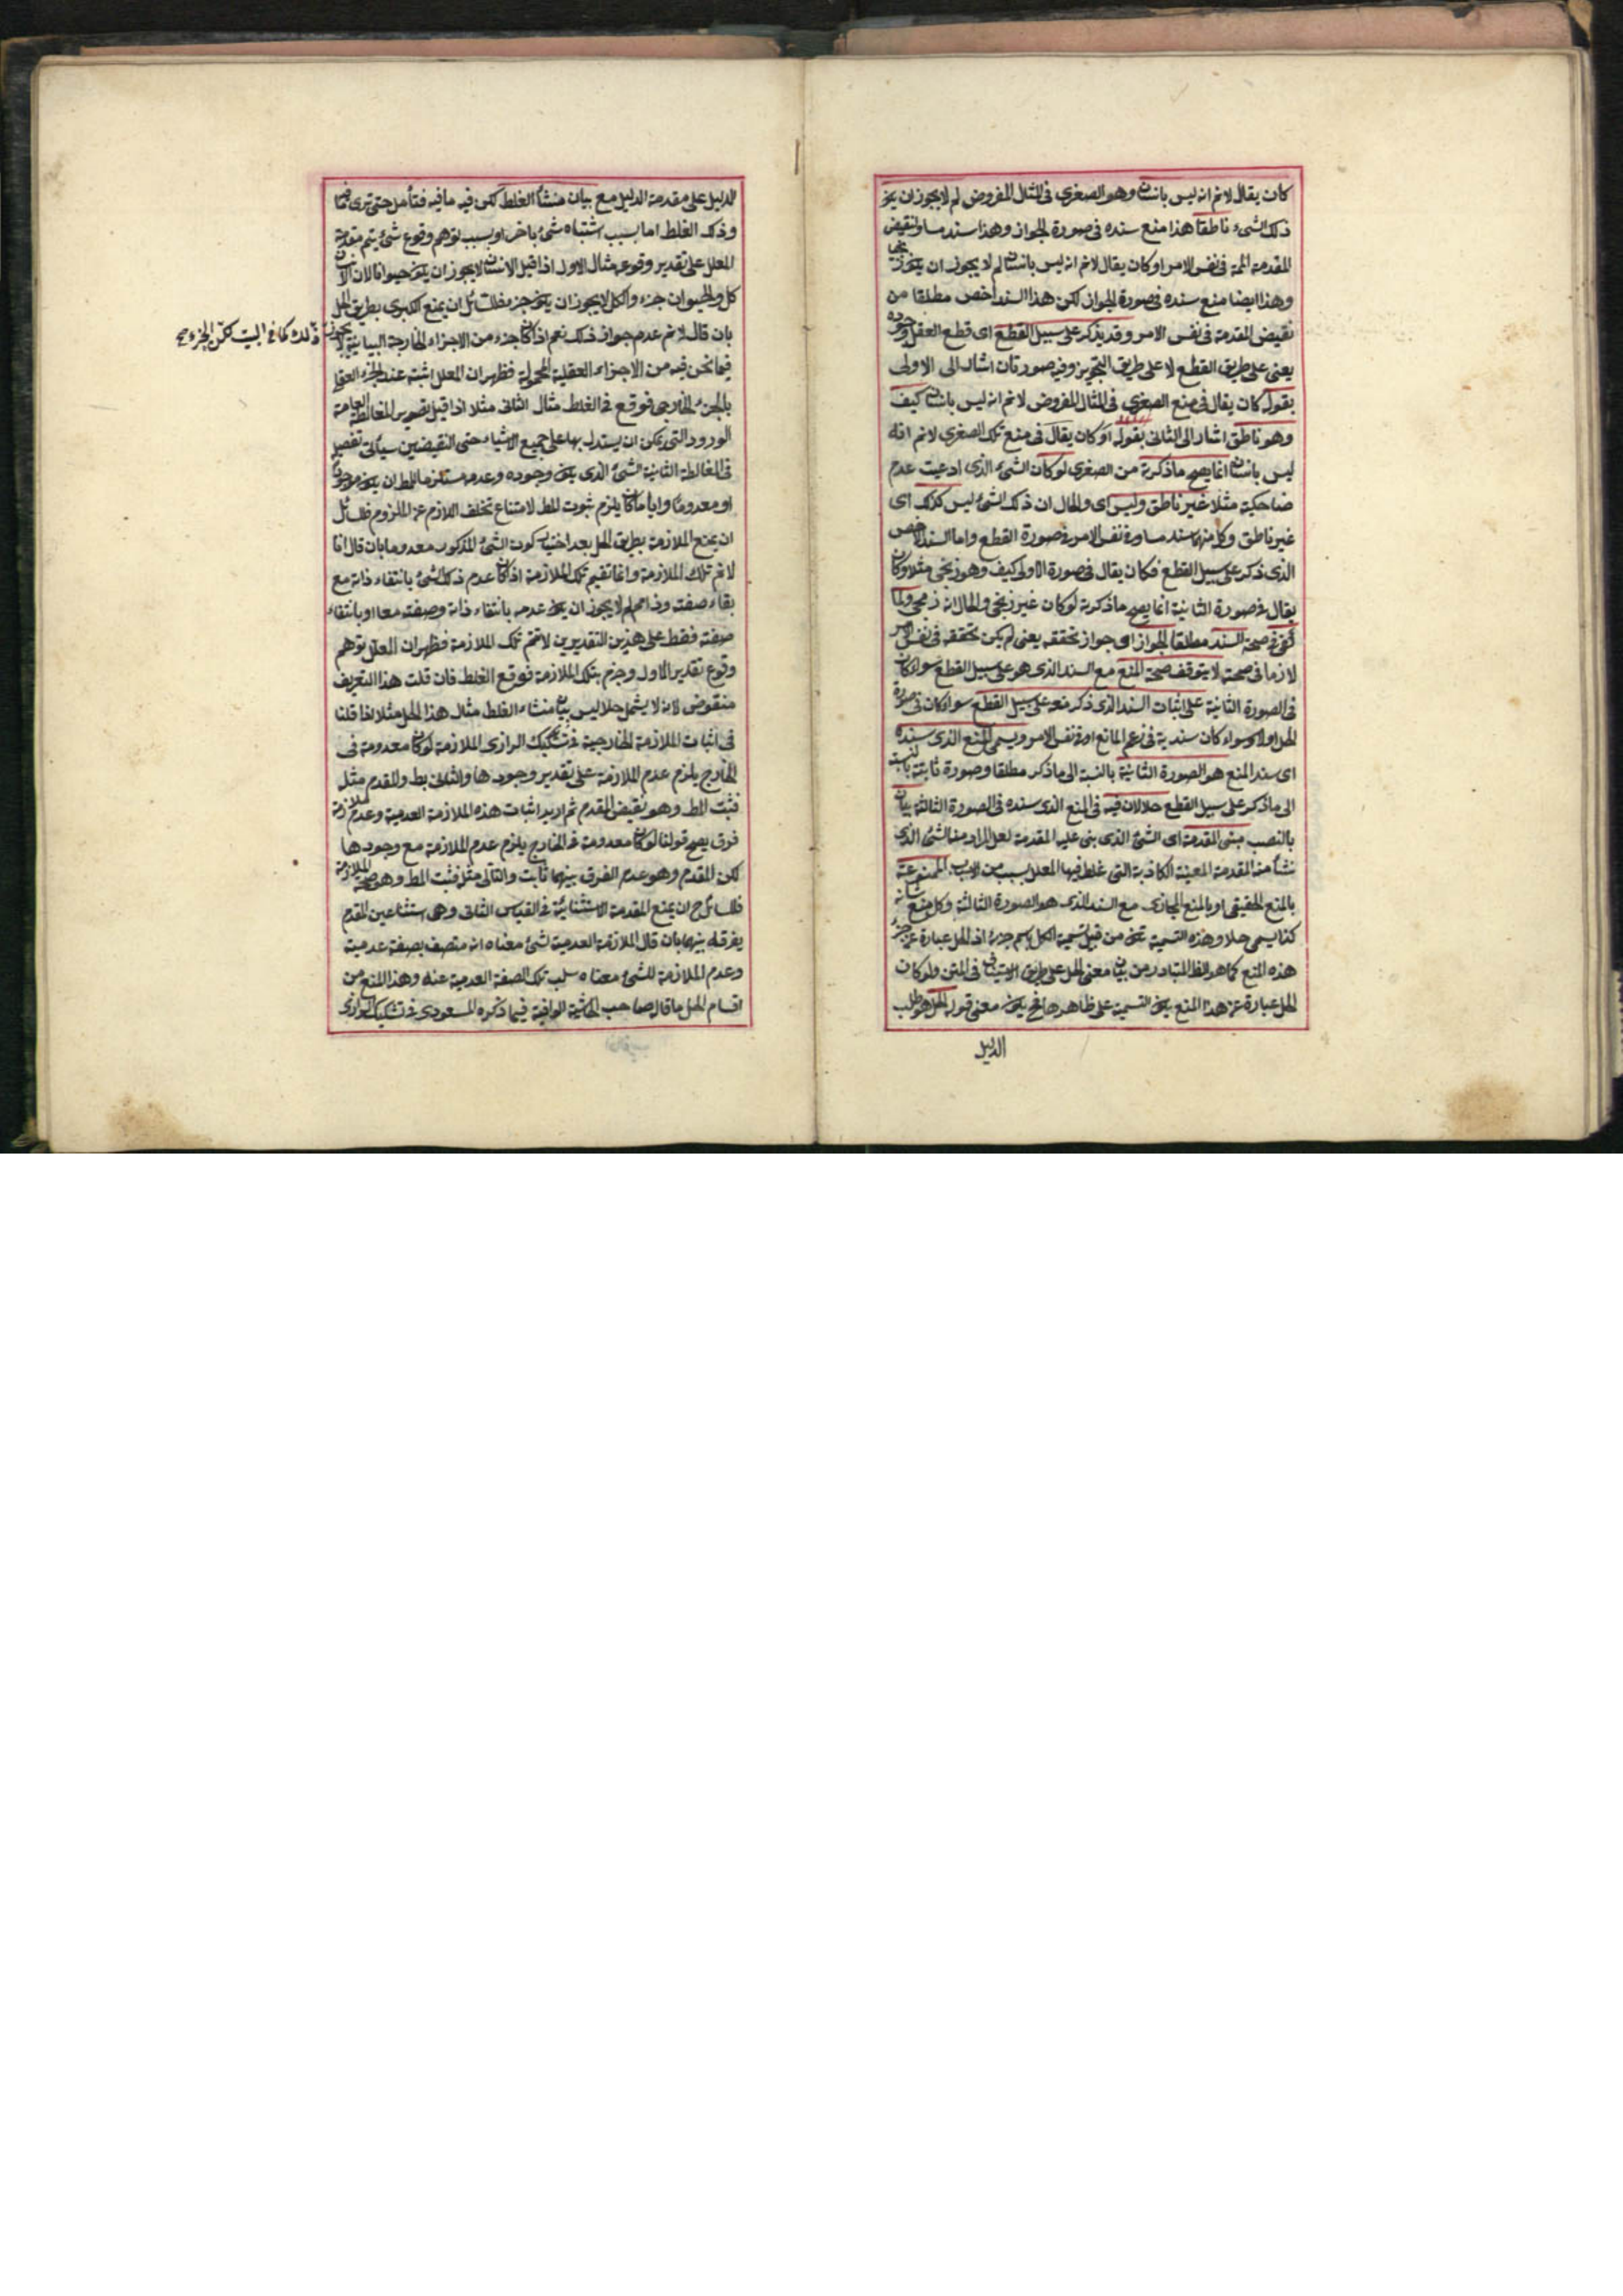 كان يقال لانم انه ليس بانسان وهو الصغرى فى المثال المفروض لم لا يجوز ان يكون
ذلك الشىء ناطقا هذا منع سنده فى صورة الجواز وهذا سند مساو لنقيض
المقدمة المم فى نفس الامر او كان يقال لانم انه ليس بانسان لم لا يجوز ان يكون زنجيا
وهذا ايضا منع سنده فى صورة الجواز لكن هذا السند اخص مطلقا من
نقيض المقدمة فى نفس الامر وقد يذكر على سبيل القطع اى قطع العقل وجزمه
يعنى على طريق القطع لا على طريق التجويز وفيه صورتان اشار الى الاولى
بقوله كان يقال فى منع الصغرى فى المثال المفروض لانم انه ليس بانسان كيف
وهو ناطق اشار الى الثانى بقوله او كان يقال فى منع تلك الصغرى لانم انه
ليس بانسان انما يصح ما ذكرته من الصغرى لو كان الشىء الذى ادعيت عدم
ضاحكيته مثلا غير ناطق وليس اى والحال ان ذلك الشىء ليس كذلك اى
غير ناطق وكل منهما سند مساو فى نفس الامر فى صورة القطع واما السند الاخص
الذى ذكر على سبيل القطع فكان يقال فى صورة الاولى كيف وهو زنجى مثلا وكان
يقال فى صورة الثانية انما يصح ما ذكرته لو كان غير زنجى والحال انه زنجى ولما
كفى فى صحة السند مطلقا الجواز اى جواز تحققه يعنى لم يكن تحققه فى نفس الامر
لازما فى صحته لا يتوقف صحة المنع مع السند الذى هو على سبيل القطع سواء كان
فى الصورة الثانية على اثبات السند الذى ذكر معه على سبيل القطع سواء كان فى صورة
الحل اولا وسواء كان سندية فى زعم المانع او فى نفس الامر ويسمى المنع الذى سنده
اى سند المنع هو الصورة الثانية بالنسبة الى ما ذكر مطلقا وصورة ثابتة بالنسبة
الى ما ذكر على سبيل القطع حلا لان فيه فى المنع الذى سنده فى الصورة الثالثة بيان
بالنصب مبنى المقدمة اى الشىء الذى بنى عليه المقدمة لعل المراد منه الشىء الذى
نشأ منه المقدمة المعينة الكاذبة التى غلط فيها المعلل بسبب من الاسباب الممنوعة
بالمنع الحقيقى او بالمنع المجازى مع السند الذى هو الصورة الثالثة وكل منع شانه
كذا يسمى حلا وهذه التسمية تكون من قبيل تسمية الكل باسم جزئه اذ الحل عبارة عن جزء
هذه المنع كما هو الظ المتبادر من بيان معنى الحل على طريق الاستيناف فى المتن ولو كان
الحل عبارة عن هذا المنع يكون التسمية على ظاهرها فح يكون معنى قوله الحل هو طلب
الدليل
الدليل على مقدمة الدليل مع بيان منشأ الغلط لكن فيه ما فيه فتأمل حتى ترى فما
وذلك الغلط اما بسبب اشتباه شىء باخر او بسبب توهم وقوع شىء يتم مقدمة
المعلل على تقدير وقوعه مثال الاول اذا قيل الانسان لا يجوز ان يكون حيوانا لان الانسان
كل والحيوان جزء والكل لا يجوز ان يكون جزء فللسائل ان يمنع الكبرى بطريق الحل
بان قال لانم عدم جواز ذلك نعم اذا كان جزء من الاجزاء الخارجة البيانية لا يجوز
ذلك كما فى البيت لكن الجزء صح
فيما نحن فيه من الاجزاء العقلية المحمولة فظهر ان المعلل اشتبه عنده الجزء العقلى
بالجزء الخارجى فوقع فى الغلط مثال الثانى مثلا اذا قيل بتصوير المغالطة العامة
الورود التى يمكن ان يستدل بها على جميع الاشياء حتى النقيضين سيأتى تفصيل
فى المغالطة الثانية الشىء الذى يكون وجوده وعدمه مستلزما للمط ان يكون موجودا
او معدوما وايا ما كان يلزم ثبوت المط لامتناع تخلف اللازم عن الملزوم فللسائل
ان يمنع الملازمة بطريق الحل بعد اختيار كون الشىء المذكور معدوما بان قال انا
لانم تلك الملازمة وانما تقيم تلك الملازمة اذا كان عدم ذلك الشىء بانتفاء ذاته مع
بقاء صفته وذا مم لم لا يجوز ان يكون عدمه بانتفاء ذاته وصفته معا او بانتفاء
صفته فقط على هذين التقديرين لا تتم تلك الملازمة فظهر ان المعلل توهم
وقوع تقدير الاول وجزم بتلك الملازمة فوقع الغلط فان قلت هذا التعريف
منقوض لانه لا يشمل حلا ليس بيان منشاء الغلط مثال هذا الحل مثلا اذا قلنا
فى اثبات الملازمة الخارجية فى تشكيك الرازى الملازمة لو كان معدومة فى
الخارج يلزم عدم الملازمة على تقدير وجودها والتالى بط والمقدم مثله
فثبت المط وهو نقيض المقدم ثم اريد اثبات هذه الملازمة العدمية وعدم الملازمة
فرق يصح قولنا لو كان معدومة فى الخارج يلزم عدم الملازمة مع وجودها
لكن المقدم وهو عدم الفرق بينهما ثابت والتالى مثله فثبت المط وهو صحة الملازمة
فللسائل ح ان يمنع المقدمة الاستثنائية فى القياس الثانى وهى استثناء عين المقدم
يفرقه بينهما بان قال الملازمة العدمية لشىء معناه انه متصف بصفة عدمية
وعدم الملازمة للشىء معناه سلب تلك الصفة العدمية عنه وهذا المنع من
اقسام الحل ما قال صاحب الحاشية الوافية فيما ذكره المسعودى فى تشكيك الرازى